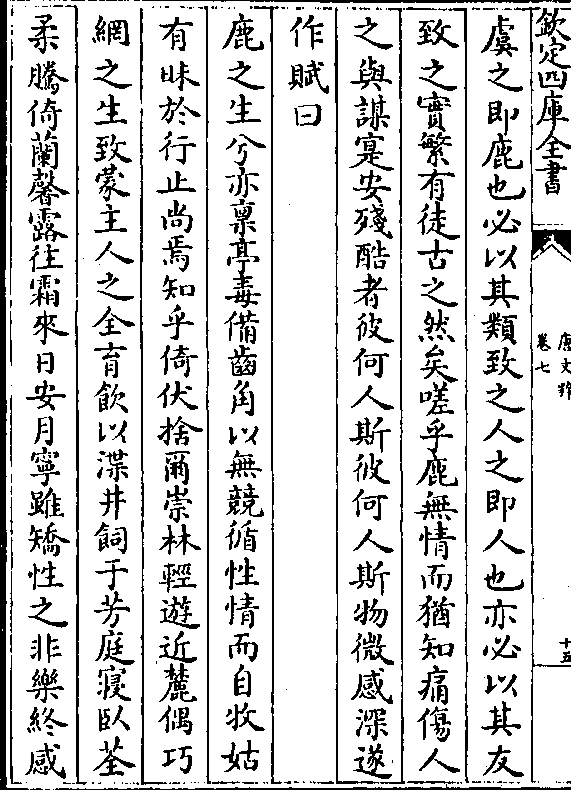 欽定四庫全書
唐文粹
卷七
十五
虞之即鹿也必以其類致之人之即人也亦必以其友
致之實繁有徒古之然矣嗟乎鹿無情而猶知痛傷人
之與謀寔安殘酷者彼何人斯彼何人斯物微感深遂
作賦曰
鹿之生兮亦禀亭毒備齒角以無競循性情而自牧姑
有昧於行止尚焉知乎倚伏捨爾崇林輕遊近麓偶巧
網之生致蒙主人之全育飲以渫井飼于芳庭寢臥荃
柔騰倚蘭馨露往霜來日安月寧雖矯性之非樂終感